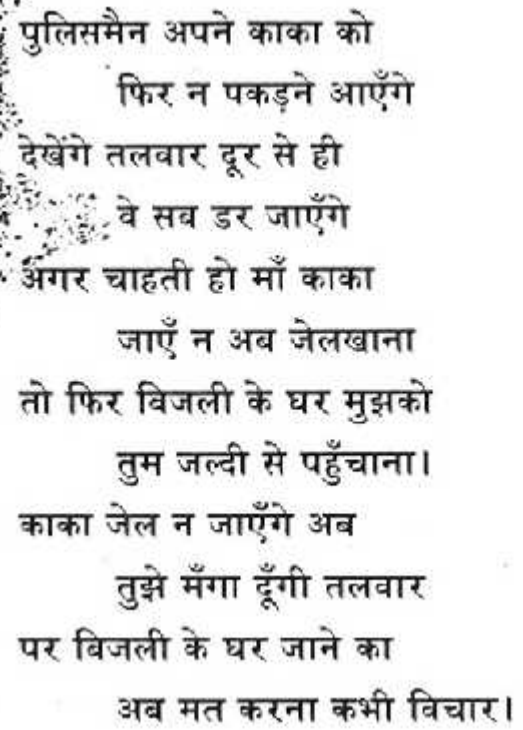 पुलिसमैन अपने काका को
फिर न पकड़ने आएँगे
देखेंगे तलवार दूर से ही
वे सब डर जाएँगे
अगर चाहती हो माँ काका
जाएँ न अब जेलखाना
तो फिर बिजली के घर मुझको
तुम जल्दी से पहुँचाना।
काका जेल न जाएँगे अब
तुझे मँगा दूँगी तलवार
पर बिजली के घर जाने का
अब मत करना कभी विचार।